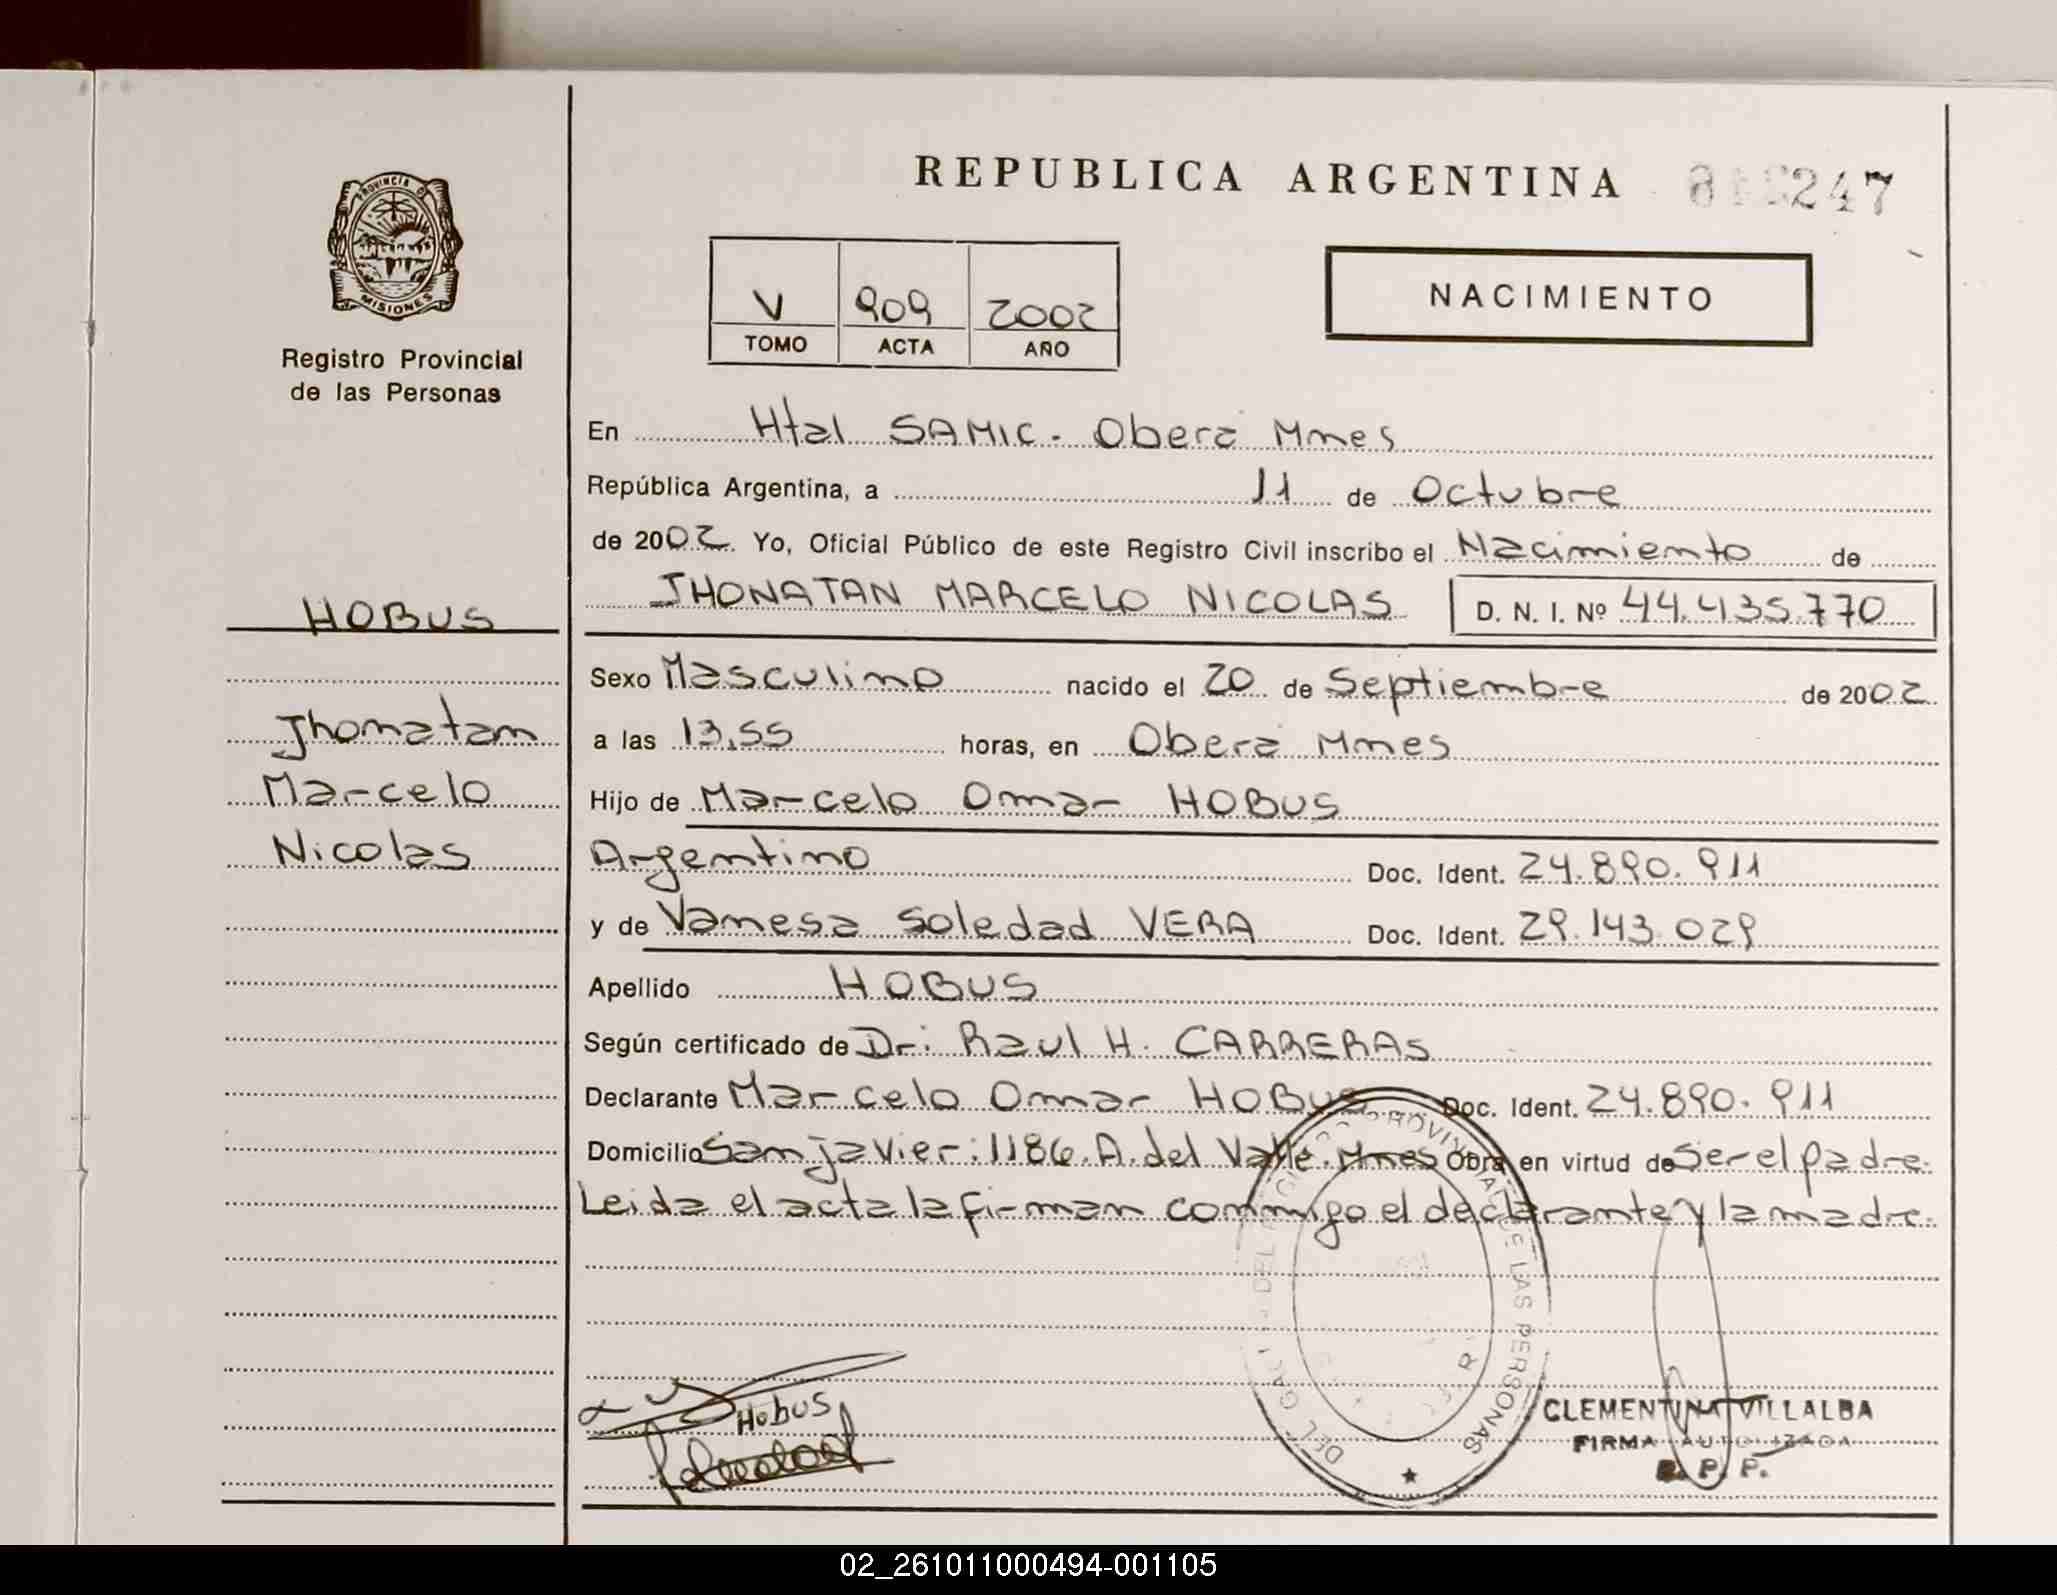 REPUBLICA ARGENTINA
247
PROVINCIA DE
MISIONES
Registro Provincial
de las Personas
V 909 2002
TOMO ACTA AÑO
NACIMIENTO
En Htal SAMIC. Oberá Mnes
República Argentina, a 11 de Octubre
de 2002 Yo, Oficial Público de este Registro Civil inscribo el Nacimiento de
JHONATAN MARCELO NICOLAS D. N. I. Nº 44.435.770
HOBUS
Jhonatan
Marcelo
Nicolas
Sexo Masculino nacido el 20 de Septiembre de 2002
a las 13,55 horas, en Oberá Mnes
Hijo de Marcelo Omar HOBUS
Argentino Doc. Ident. 24.890.911
y de Vanesa Soledad VERA Doc. Ident. 29.143.029
Apellido HOBUS
Según certificado de Dr: Raul H. CARRERAS
Declarante Marcelo Omar HOBUS Doc. Ident. 24.890.911
Domicilio San javier: 1186. A. del Valle. Mnes Obra en virtud de Ser el padre.
Leida el acta la firman conmigo el declarante y la madre.
PROVINCIAL DE LAS PERSONAS
Hobus
CLEMENTINA VILLALBA
FIRMA AUTORIZADA
R. P. P.
02_261011000494-001105